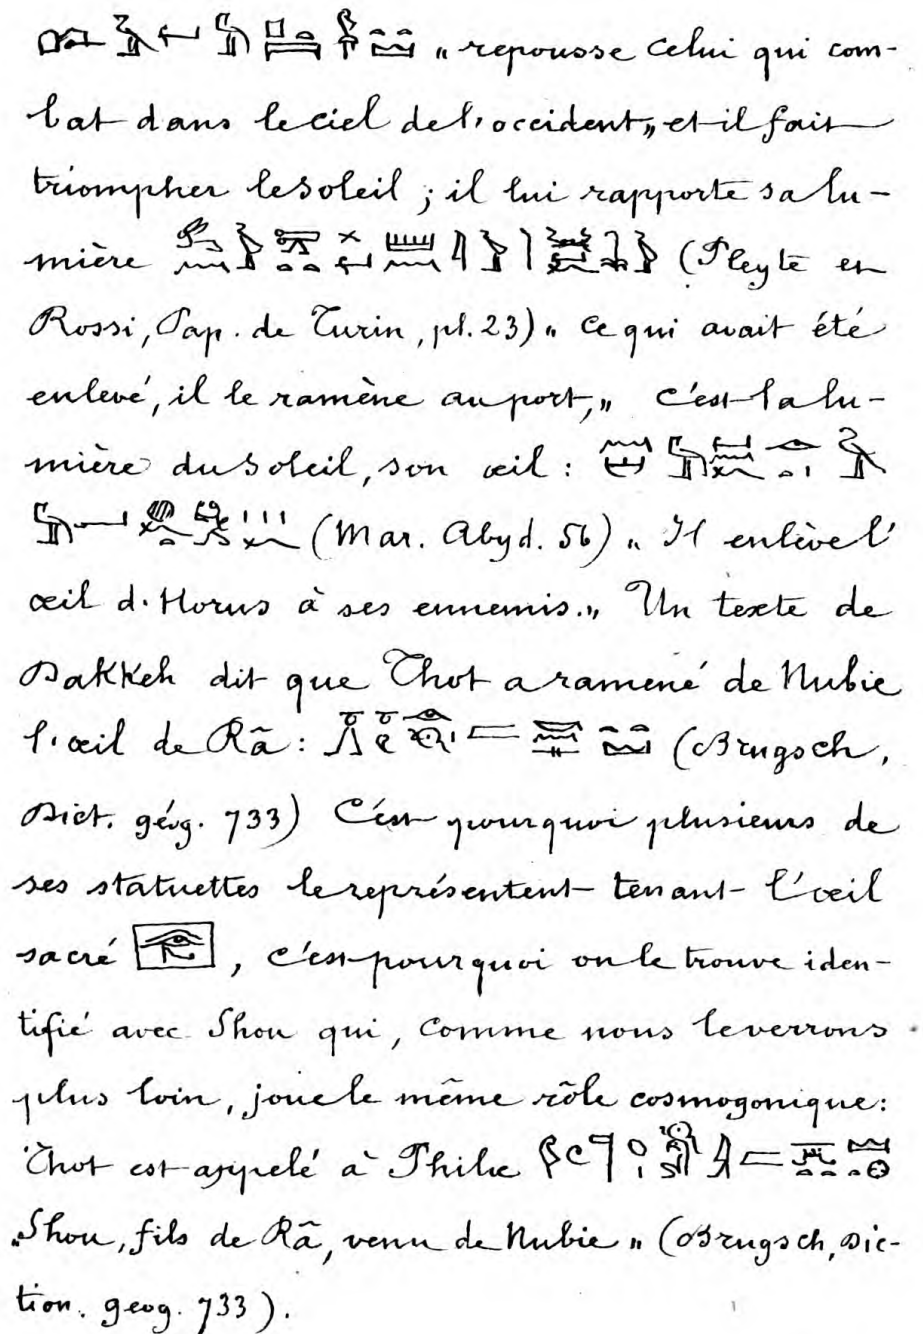 „ repousse celui qui com-
bat dans le ciel de l'occident„ et il fait
triompher le soleil ; il lui rapporte sa lu-
mière (Pleyte en
Rossi, Pap. de Turin, pl. 23) „ ce qui avait été
enlevé, il le ramène au port,„ c'est la lu-
mière du soleil, son œil :
(Mar. Abyd. 56) „ Il enlève l'
œil d'Horus à ses ennemis.„ Un texte de
Dakkeh dit que Thot a ramené de Nubie
l'œil de Rā : (Brugsch,
Dict. géog. 733) C'est pourquoi plusieurs de
ses statuettes le représentent tenant l'œil
sacré , c'est pourquoi on le trouve iden-
tifié avec Shou qui, comme nous le verrons
plus loin, joue le même rôle cosmogonique :
Thot est appelé à Philæ
„Shou, fils de Rā, venu de Nubie „ (Brugsch, Dic-
tion. geog. 733).